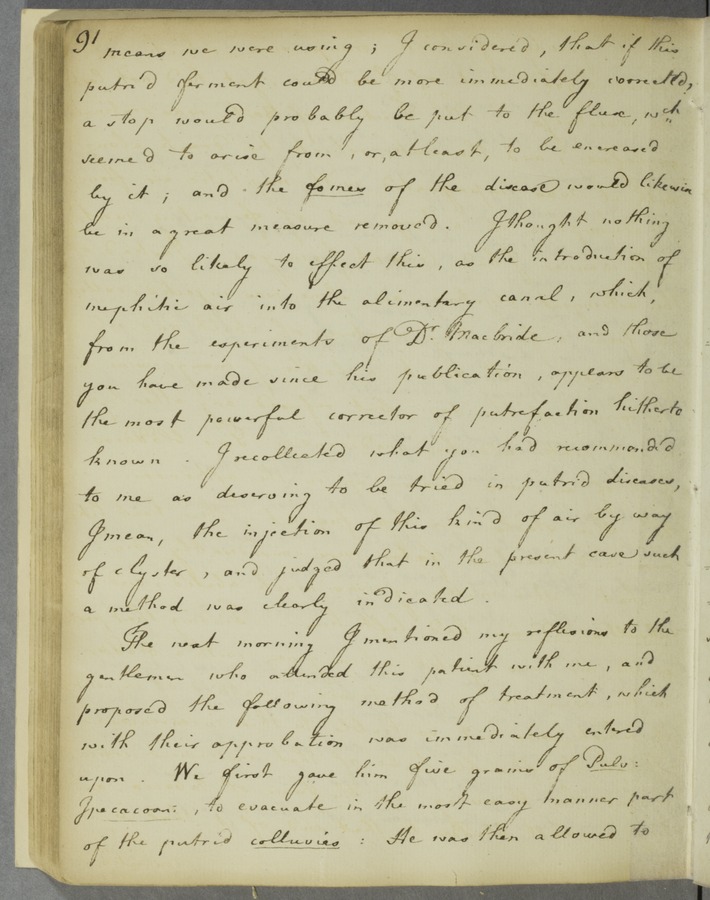 91
means we were using ; I considered, that if this
putrid ferment could be more immediately corrected,
a stop would probably be put to the flux, wch
seemed to arise from, or, at least, to be encreased
by it ; and the fomes of the disease would likewise
be in a great measure removed. I thought nothing
was so likely to effect this, as the introduction of
mephitic air into the alimentary canal, which,
from the experiments of Dr. Macbride, and those
you have made since his publication, appears to be
the most powerful corrector of putrefaction hitherto
known. I recollected what you had recommended
to me as deserving to be tried in putrid diseases,
I mean, the injection of this kind of air by way
of clyster, and judged that in the present case such
a method was clearly indicated.
The next morning I mentioned my reflexions to the
gentlemen who attended this patient with me, and
proposed the following method of treatment, which
with their approbation was immediately entered
upon. We first gave him five grains of Pulv:
Ipecacoan:, to evacuate in the most easy manner part
of the putrid colluvies : He was then allowed to